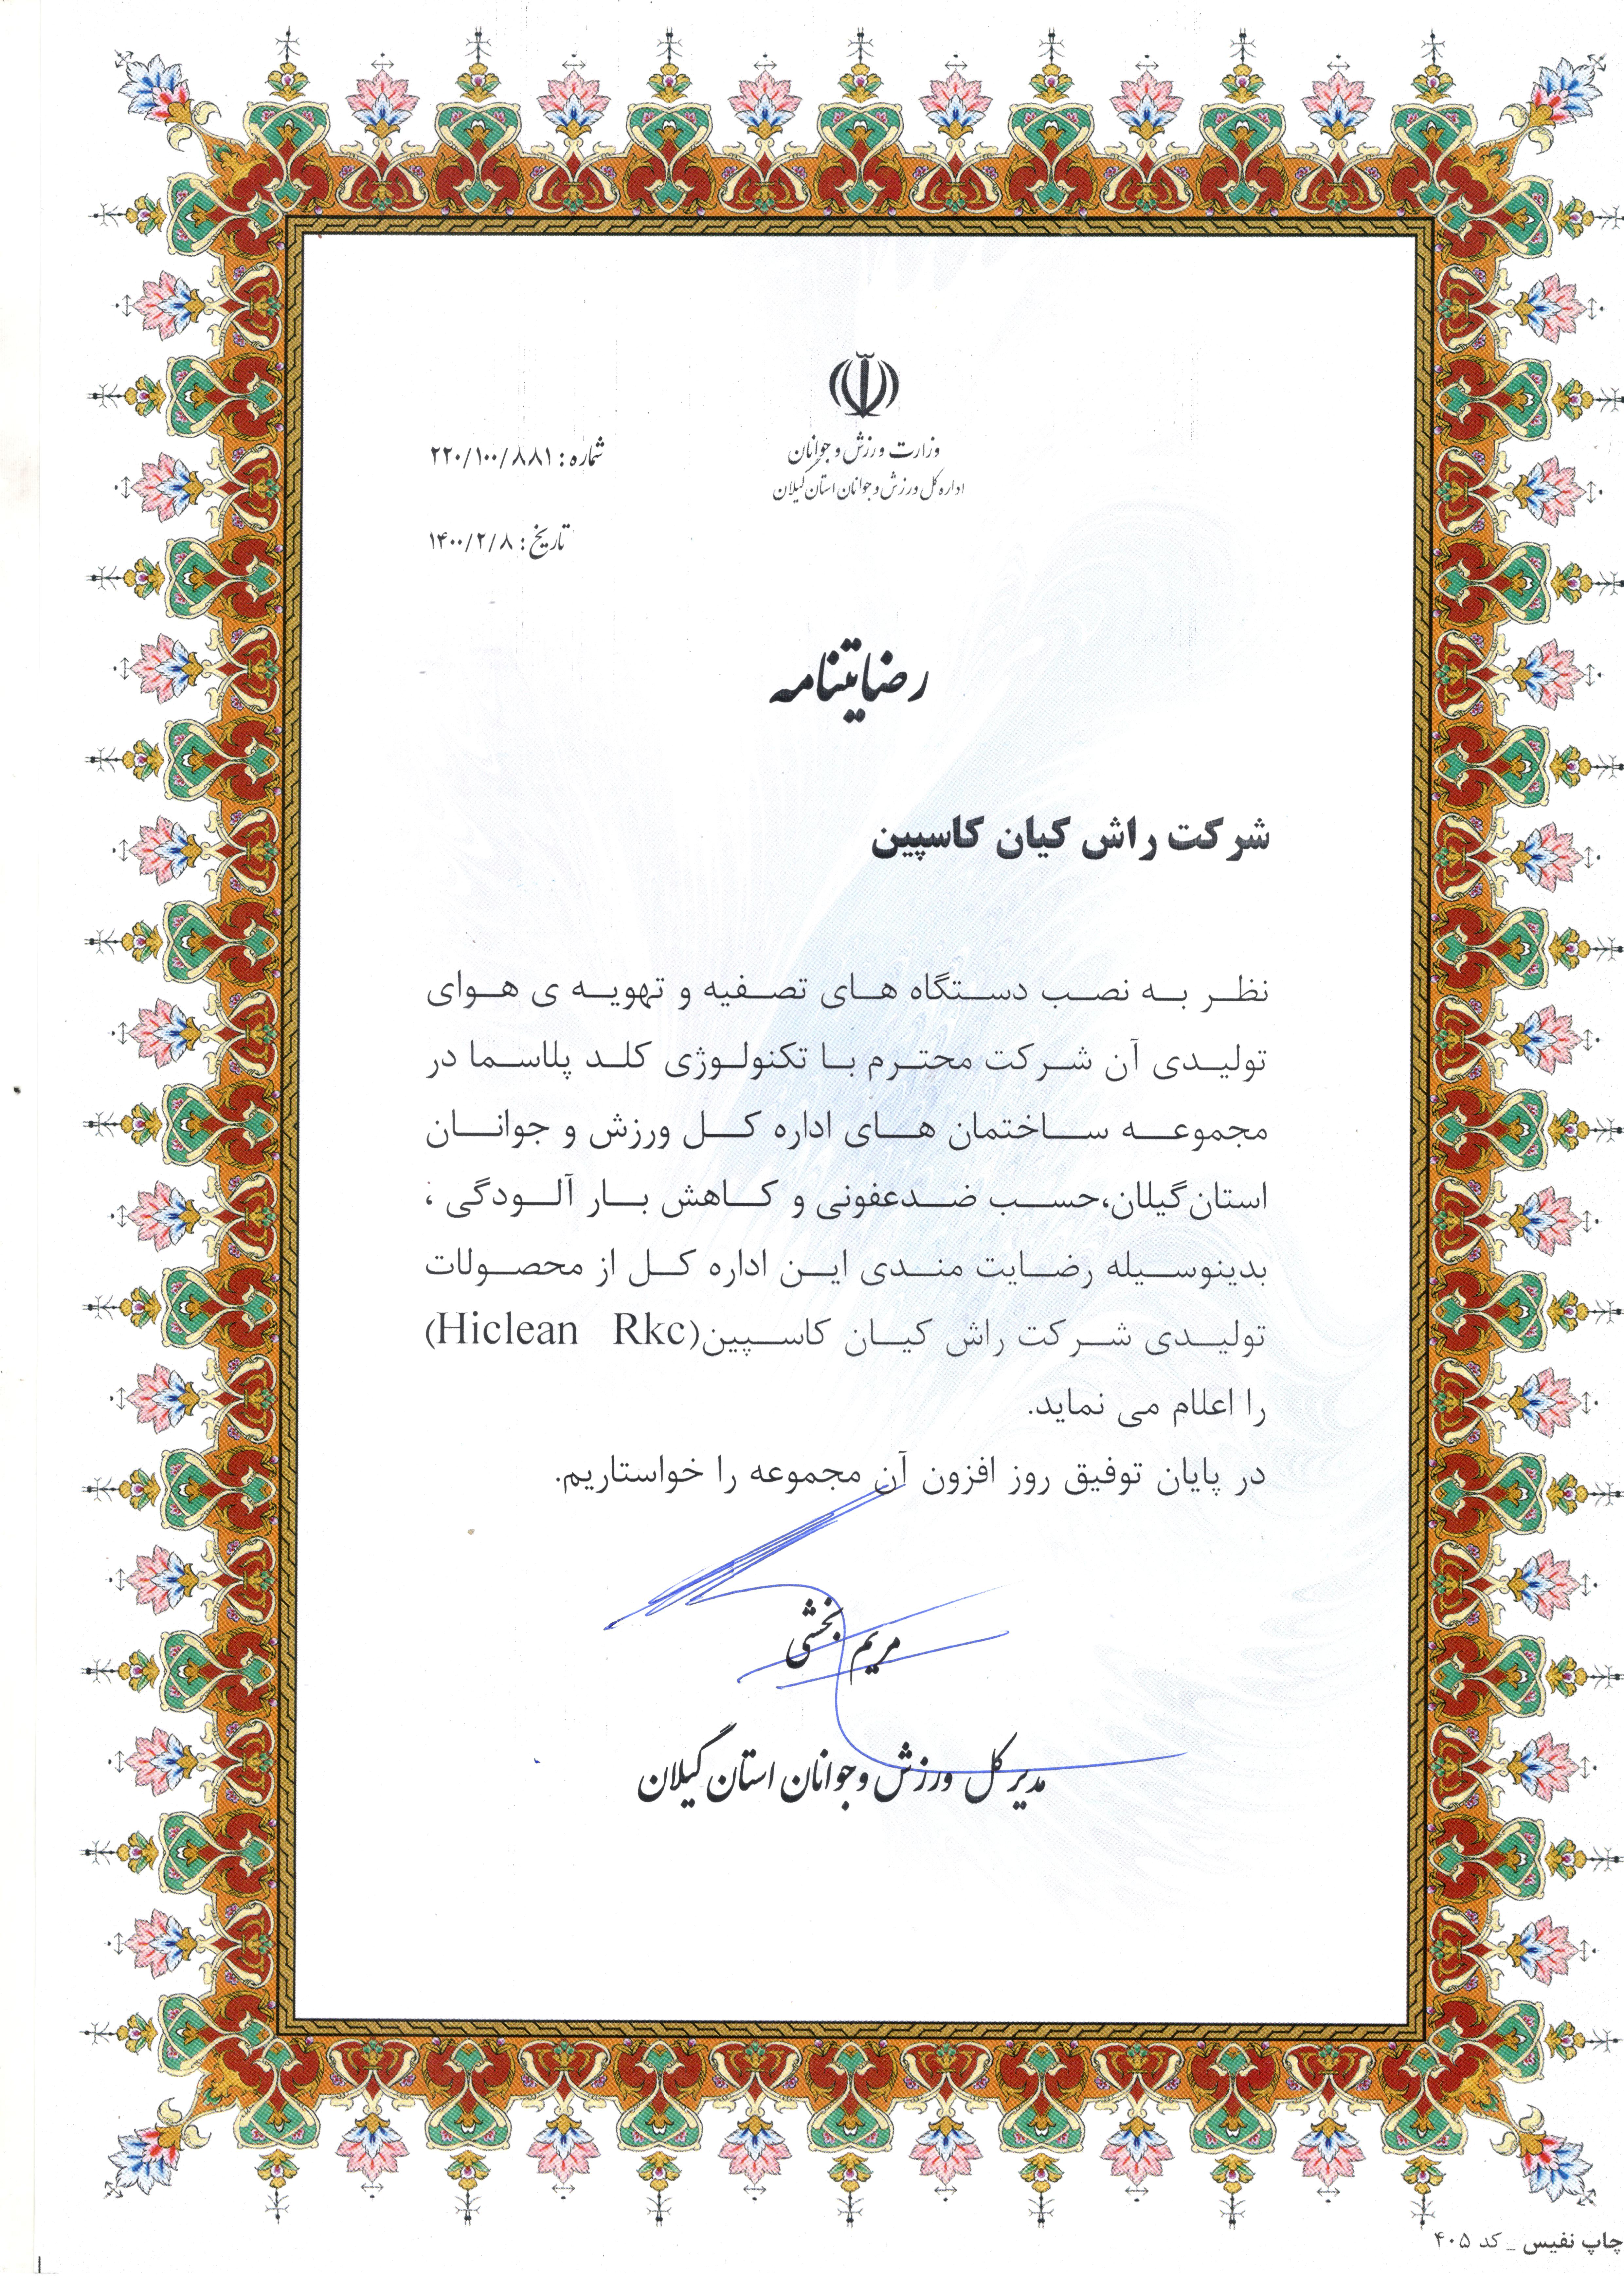 وزارت ورزش و جوانان
اداره کل ورزش و جوانان استان گیلان
شماره : ۲۲۰/۱۰۰/۸۸۱
تاریخ : ۱۴۰۰/۲/۸
رضایتنامه
شرکت راش کیان کاسپین
نظر به نصب دستگاه های تصفیه و تهویه ی هوای
تولیدی آن شرکت محترم با تکنولوژی کلد پلاسما در
مجموعه ساختمان های اداره کل ورزش و جوانان
استان گیلان،حسب ضدعفونی و کاهش بار آلودگی ،
بدینوسیله رضایت مندی این اداره کل از محصولات
تولیدی شرکت راش کیان کاسپین(Hiclean Rkc)
را اعلام می نماید.
در پایان توفیق روز افزون آن مجموعه را خواستاریم.
مریم بخشی
مدیر کل ورزش و جوانان استان گیلان
چاپ نفیس _ کد ۴۰۵